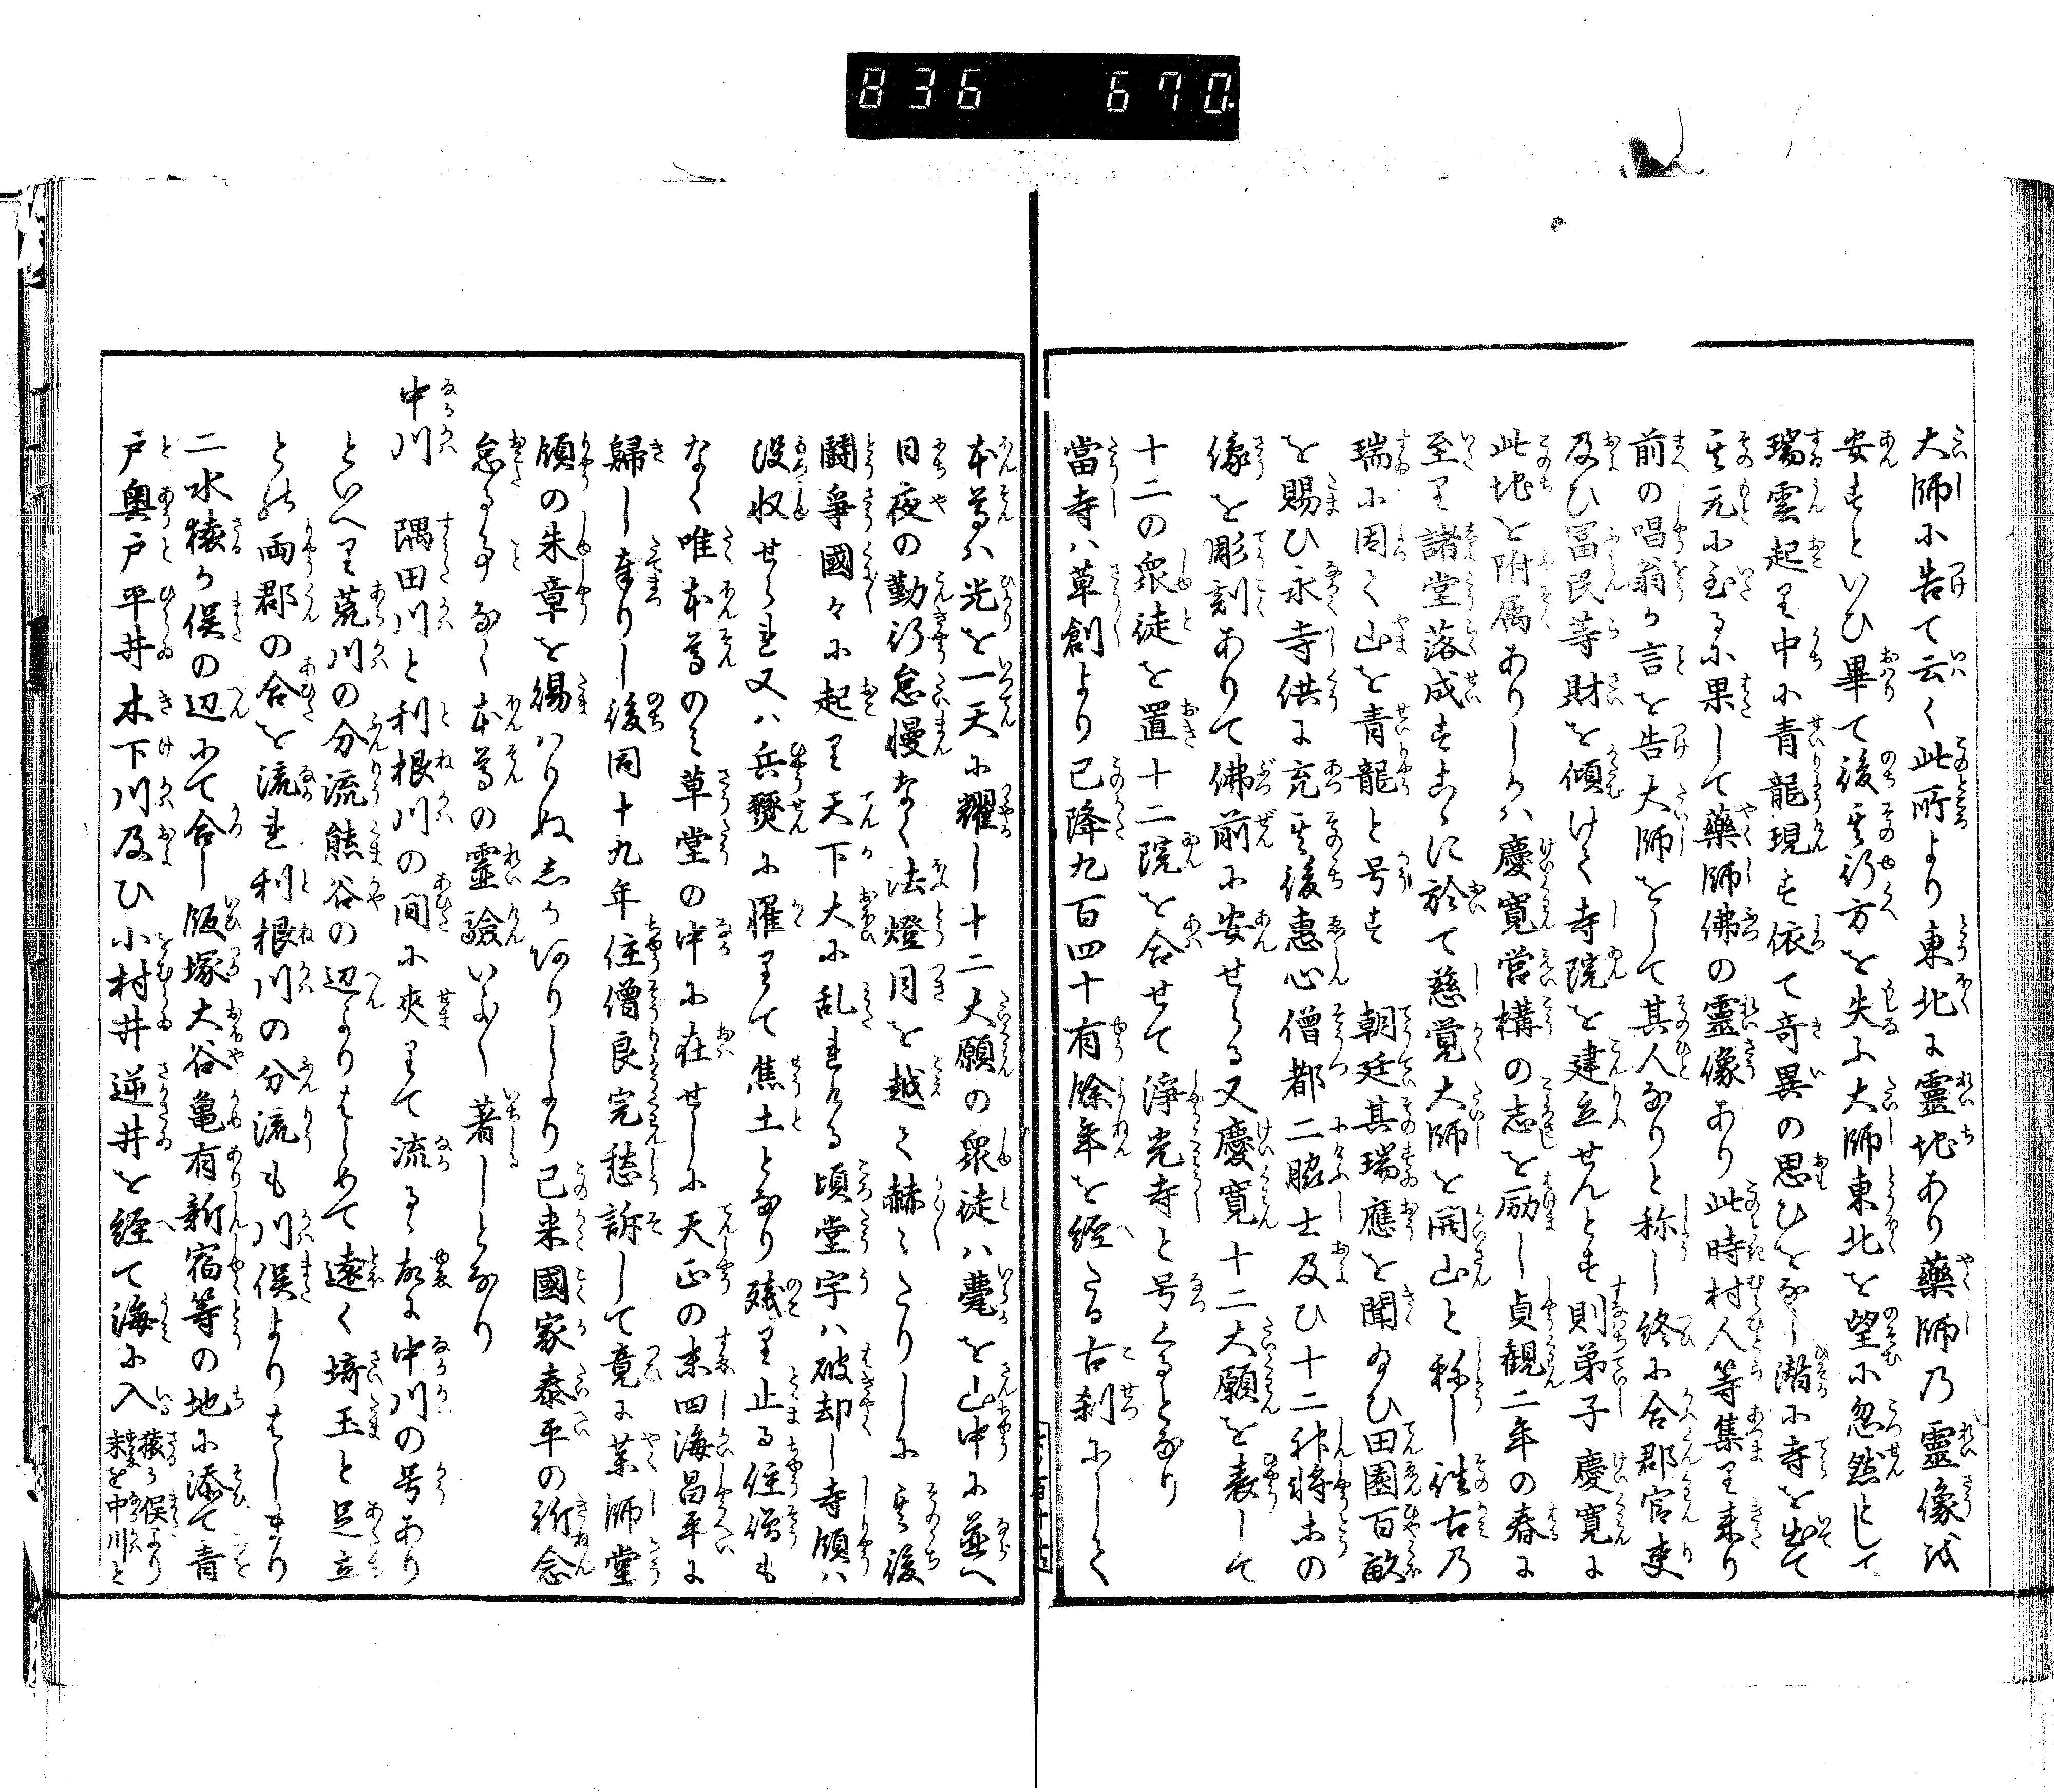 836 670
大師に告て云く此所より東北に靈地あり藥師乃靈像を
安すといひ畢て後其行方を失ふ大師東北を望に忽然として
瑞雲起り中に青龍現す依て奇異の思ひをなし潜に寺を出て
其元に到るに果して藥師佛の靈像あり此時村人等集り来り
前の唱翁か言を告大師をして其人なりと称し終に合郡官吏
及ひ冨民等財を傾けて寺院を建立せんとす則弟子慶寛に
此地を附属ありしかは慶寛営構の志を励し貞観二年の春に
至り諸堂落成すこゝに於て慈覚大師を開山と称し往古乃
瑞に因て山を青龍と号す 朝廷其瑞應を聞給ひ田園百畝
を賜ひ永寺供に充其後惠心僧都二脇士及ひ十二神將等の
像を彫刻ありて佛前に安せらる又慶寛十二大願を表して
十二の衆徒を置十二院を合せて淨光寺と号くるとなり
當寺ハ草創より已降九百四十有餘年を経たる古刹にして
本尊ハ光を一天に耀し十二大願の衆徒ハ甍を山中に並へ
日夜の勤行怠慢なく法燈月を越て赫々たりしに其後
鬪爭國々に起り天下大に乱れける頃堂宇ハ破却し寺領ハ
没収せられ又ハ兵燹に罹りて焦土となり殘り止る住僧も
なく唯本尊のミ草堂の中に在せしに天正の末四海昌平に
歸し奉りし後同十九年住僧良完愁訴して竟に薬師堂
領の朱章を賜ハりぬしか附りしより已来國家泰平の祈念
怠る事なく本尊の靈驗いよ〳〵著しとなり
中川 隅田川と利根川の間に夾りて流るゝ故に中川の号あり
といへり荒川の分流熊谷の辺よりはしめて遠く埼玉と足立
との両郡の合を流れ利根川の分流も川俣よりはしまり
二水猿か俣の辺にて合し飯塚大谷亀有新宿等の地に添て青
戸奥戸平井木下川及ひ小村井逆井を経て海に入
猿か俣より
末を中川と